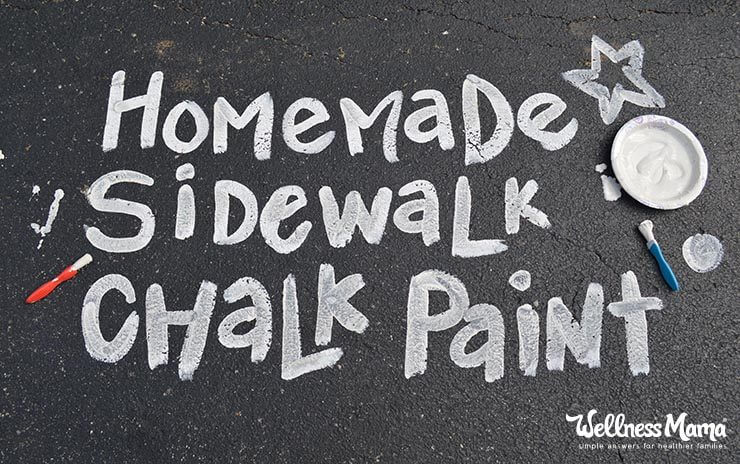 Homemade
Sidewalk
Chalk Paint
Wellness Mama®
simple answers for healthier families